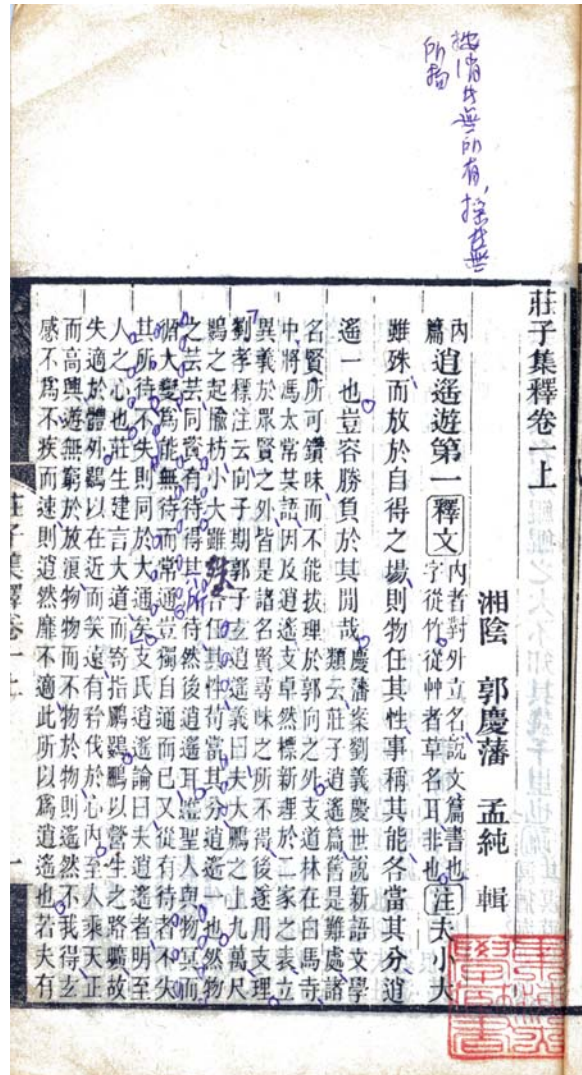 無所有，
莊子集釋卷一上
湘陰 郭慶藩 孟純 輯
內篇逍遙遊第一 釋文 內者對外立名說文篇書也字從竹從艸者草名耳非也 注 夫小大
雖殊而放於自得之場則物任其性事稱其能各當其分逍
遙一也豈容勝負於其閒哉 慶藩案劉義慶世說新語文學類云莊子逍遙篇舊是難處諸
名賢所可鑽味而不能拔理於郭向之外支道林在白馬寺
中將馮太常共語因及逍遙支卓然標新理於二家之表立
異義於眾賢之外皆是諸名賢尋味之所不得後遂用支理
劉孝標注云向子期郭子玄逍遙義曰夫大鵬之上九萬尺
鷃之起榆枋小大雖各任其性苟當其分逍遙一也然物
之芸芸同資有待得其所待然後逍遙耳惟聖人與物冥而
循大變為能無待而常通豈獨自通而已又從有待者不失
其所待不失則同於大通矣支氏逍遙論曰夫逍遙者明至
人之心也莊生建言大道而寄指鵬鷃鵬以營生之路曠故
失適於體外鷃以在近而笑遠有矜伐於心內至人乘天正
而高興遊無窮於放浪物物而不物於物則遙然不我得玄
感不為不疾而速則逍然靡不適此所以為逍遙也若夫有
莊子集釋卷一上
一